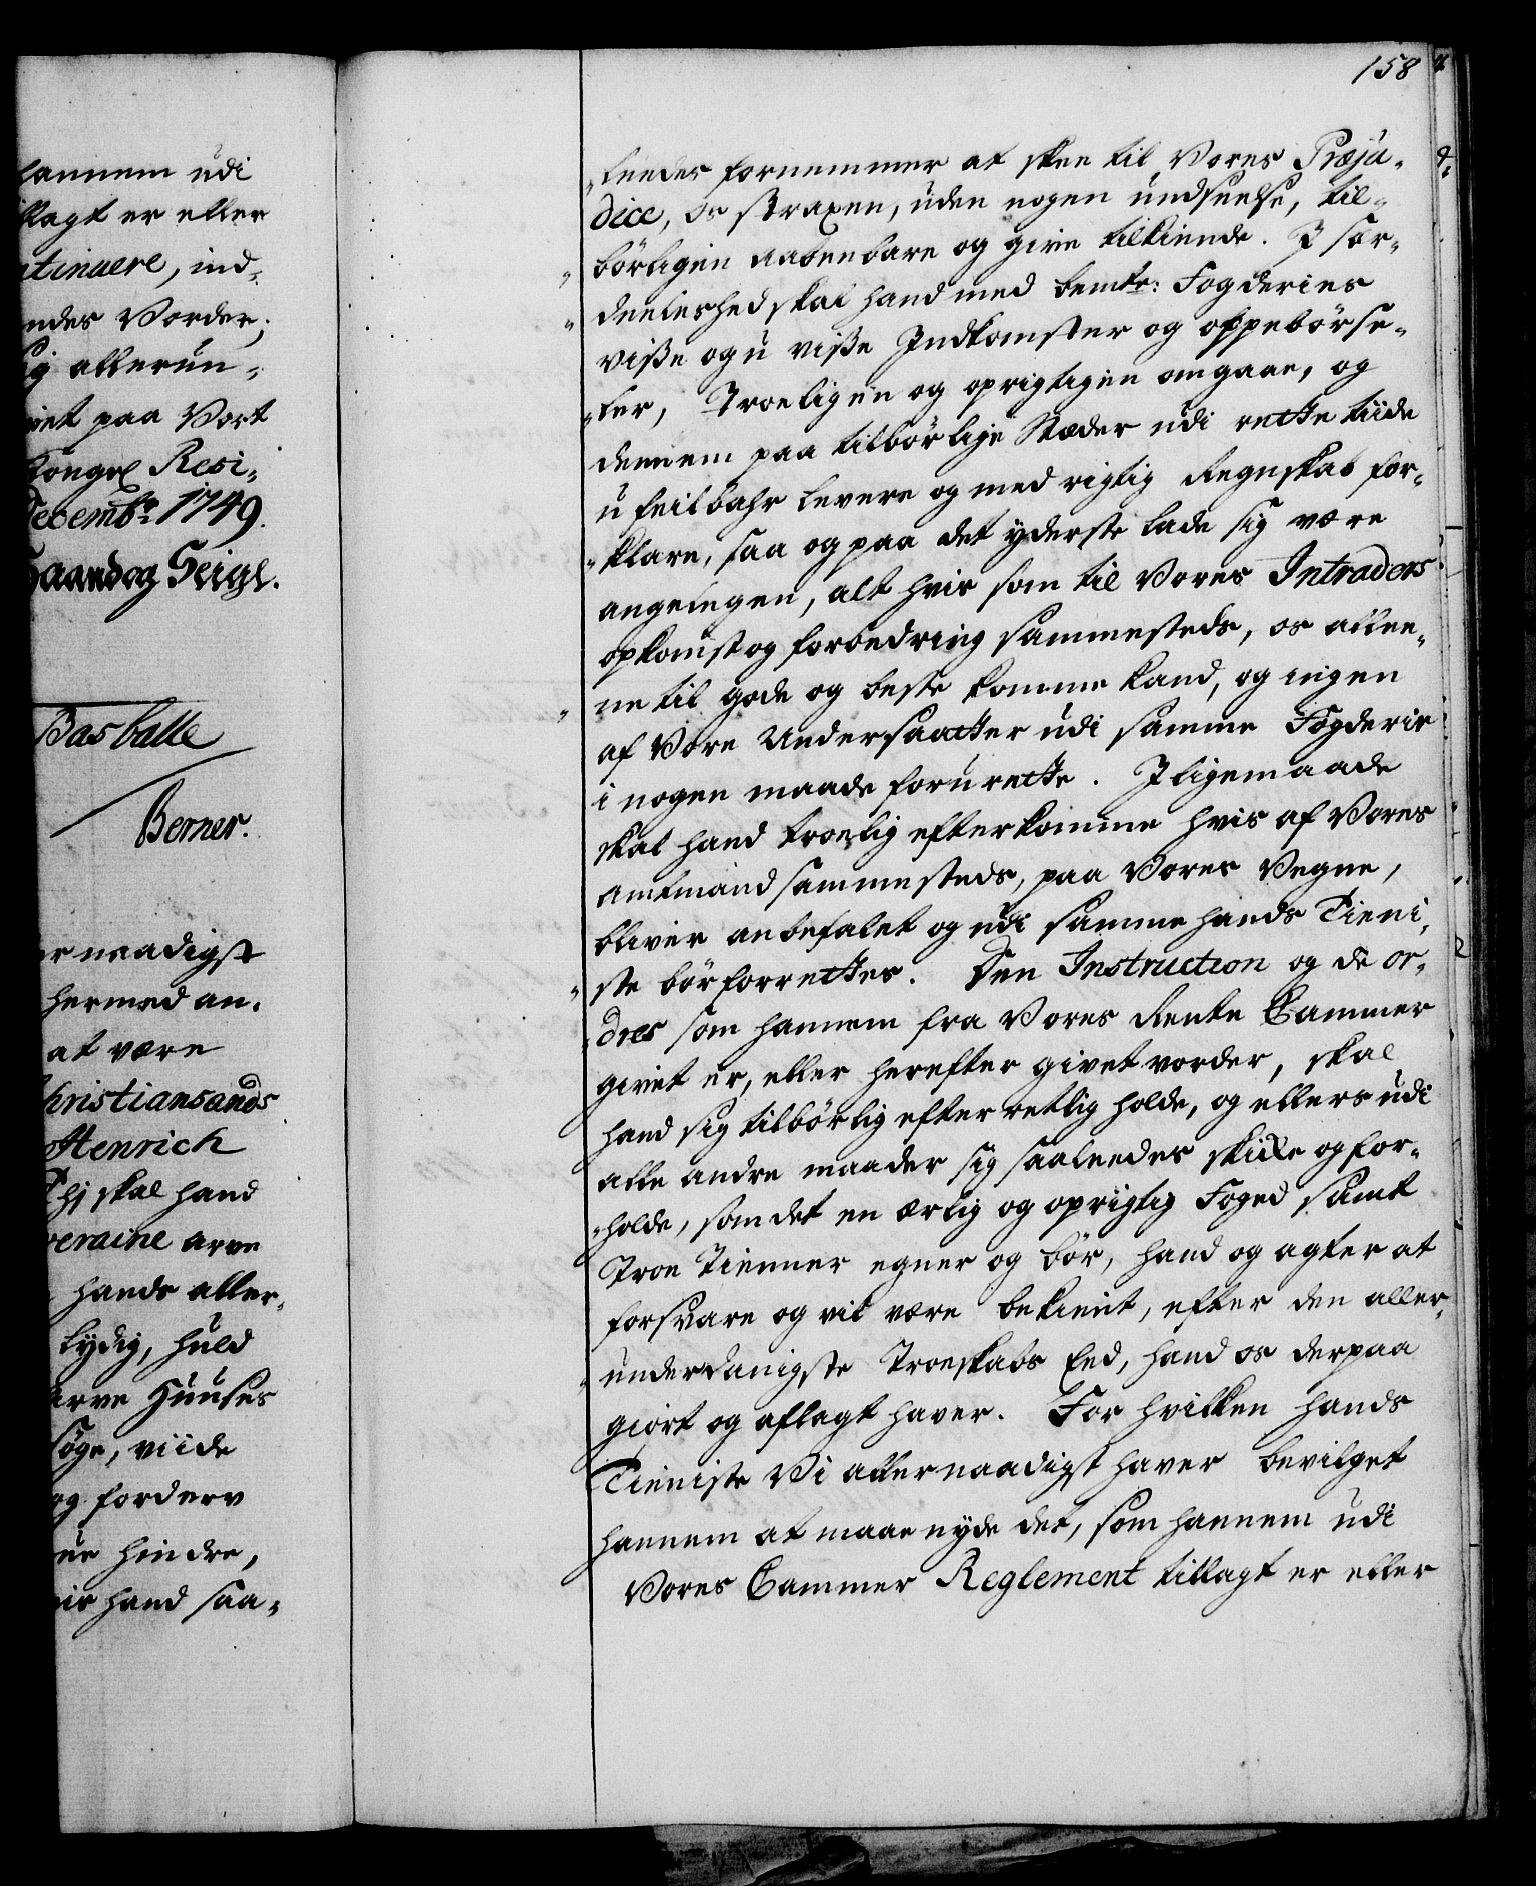 hannem udi
illagt er eller
ntinuere, ind-
ndes Vorder;
ig allerun-
vet paa Vort
Kongel Resi-
Decembr: 1749.
Haand og Seigl.
Basballe
Berner.
er naadigst
hermed an-
at være
Christiansands
Henrich
Thj skal hand
veraine arve
hands aller-
lydig, huld
arve Huuses
söge, viide
og forderv
ne hindre,
vis hand saa-
158
leedes fornemmer at skee til Vores Præju-
dice, os straxen, uden nogen undseelse, til-
börligen aabenbare og give tilkiende. I sær-
deeleshed skal hand med bemte: Fogderies
visse og u visse Indkomster og oppebörse-
ler, Troeligen og oprigtigen omgaae, og
dennem paa tilbörlige Stæder udi rette tiide
u feilbahr levere og med rigtig Regnskab for-
klare, saa og paa det yderste lade sig være
angelegen, alt hvis som til Vores Intraders
opkomst og forbedring sammesteds, os allee-
ne til gode og beste komme kand, og ingen
af Vore Undersaatter udi samme Fogderie
i nogen maade forurette. Iligemaade
skal hand troelig efterkomme hvis af Vores
Amtmand sammesteds, paa Vores Vegne,
bliver anbefalet og udi samme hands Tieni-
ste bör forrettes. Den Instruction og de or-
dres som hannem fra Vores Rente Cammer
givet er, eller herefter givet vorder, skal
hand sig tilbörlig efterretlig holde, og ellers udi
alle andre maader sig saaleedes skikke og for-
holde, som det en ærlig og oprigtig Foged samt
Troe Tienner egner og bör, hand og agter at
forsvare og vil være bekient, efter den aller-
underdanigste Troeskabs Eed, hand os derpaa
giort og aflagt haver. For hvilken hands
Tieniste Vi allernaadigst haver bevilget
hannem at maae nyde det, som hannem udi
Vores Cammer Reglement tillagt er eller